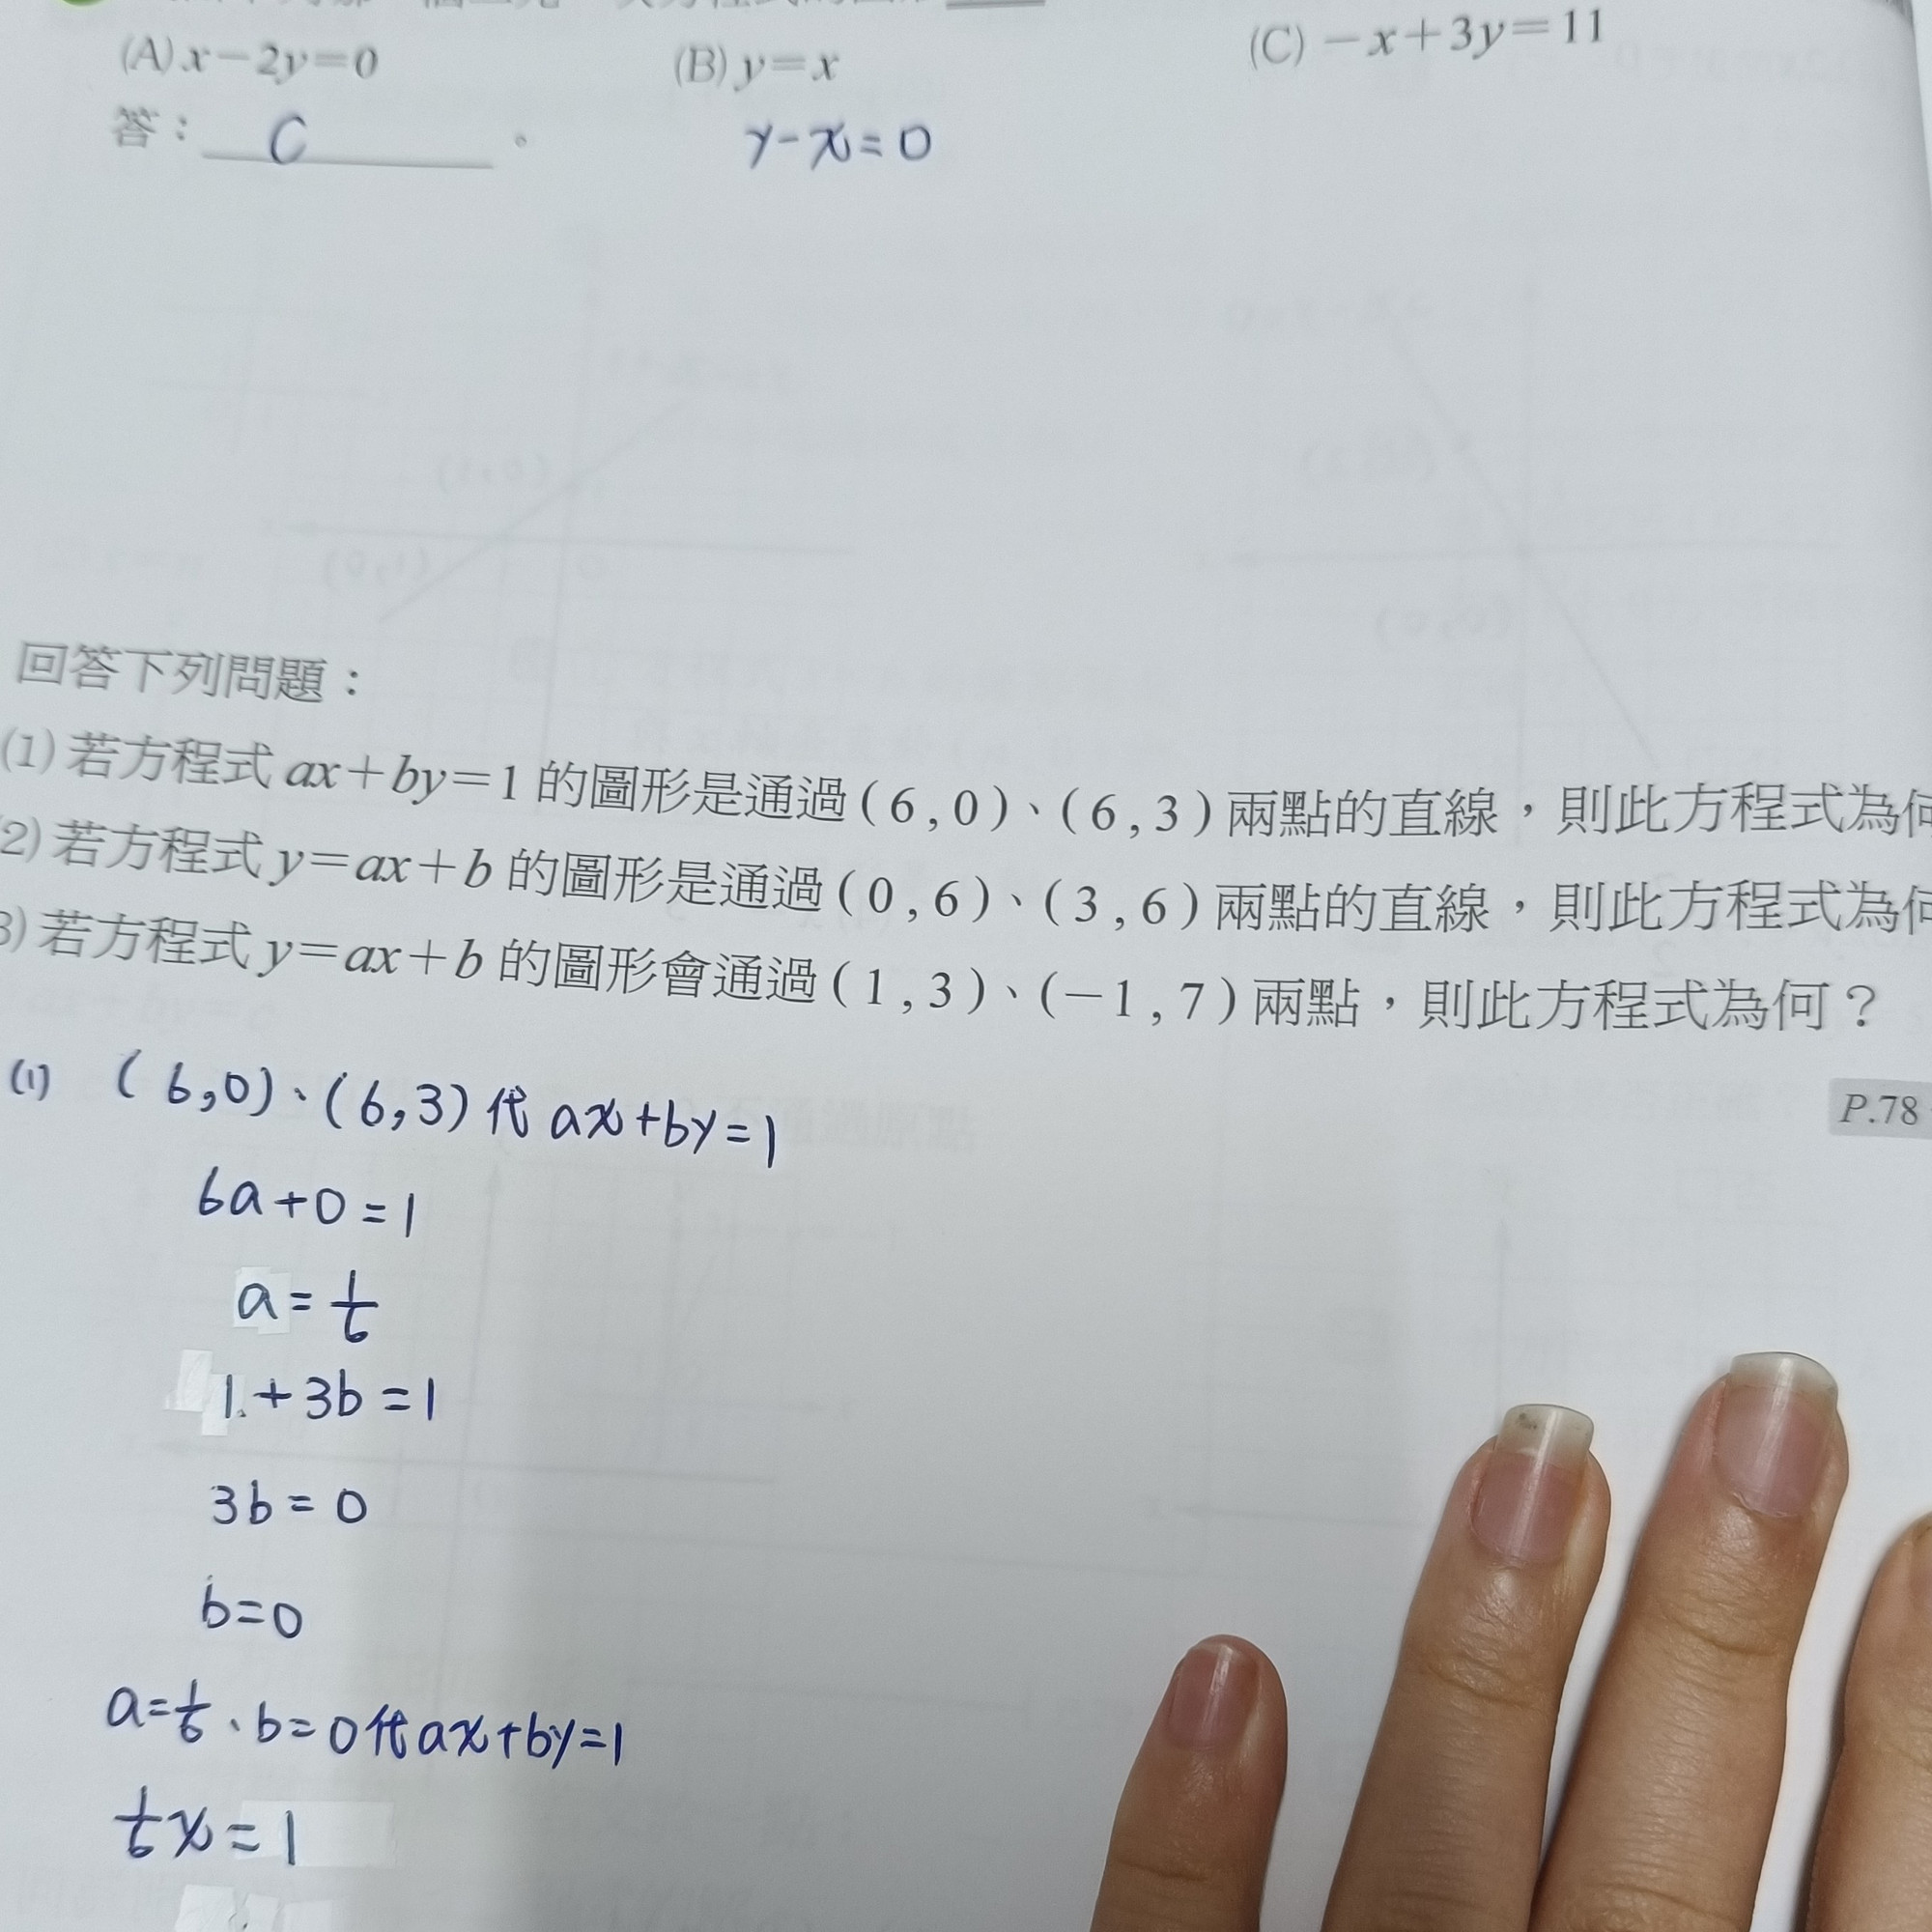 (A) x－2y＝0 (B) y＝x (C) －x＋3y＝11
答： C 。 y-x=0
回答下列問題：
(1) 若方程式 ax＋by＝1 的圖形是通過 ( 6 , 0 )、( 6 , 3 ) 兩點的直線，則此方程式為何
2) 若方程式 y＝ax＋b 的圖形是通過 ( 0 , 6 )、( 3 , 6 ) 兩點的直線，則此方程式為何
3) 若方程式 y＝ax＋b 的圖形會通過 ( 1 , 3 )、(－1 , 7 ) 兩點，則此方程式為何？
P.78
(1) (6,0)、(6,3)代 ax+by=1
6a+0=1
a=1/6
1+3b=1
3b=0
b=0
a=1/6、b=0代ax+by=1
1/6x=1